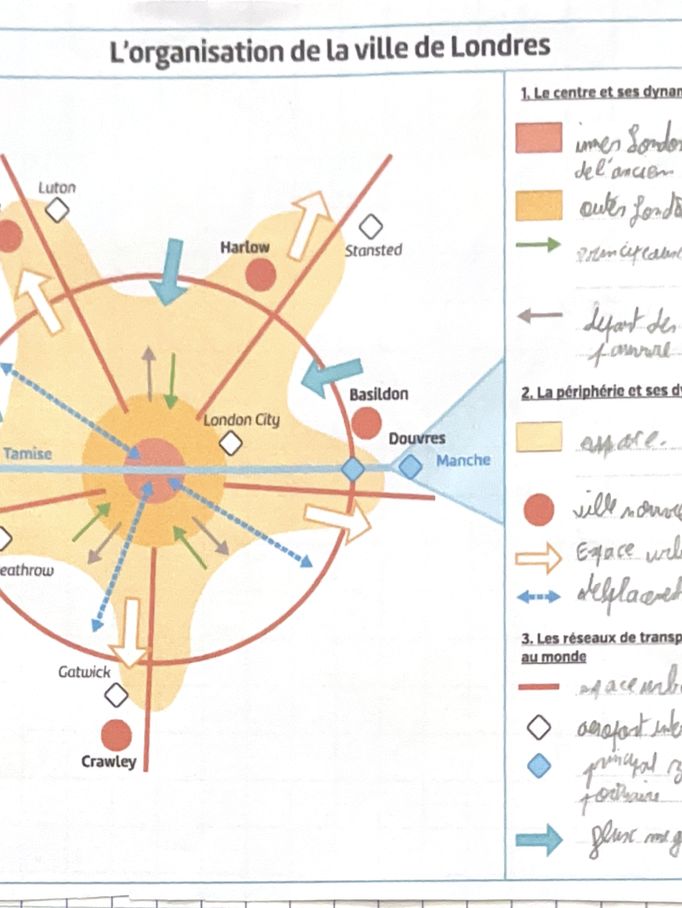 L'organisation de la ville de Londres
Luton
Harlow
Stansted
Basildon
London City
Douvres
Tamise
Manche
eathrow
Gatwick
Crawley
1. Le centre et ses dynam
inner London
de l'ancien
outer londo
départ des
2. La périphérie et ses d
ville nouve
Espace urb
3. Les réseaux de transp
au monde
aeroport inte
principal
portuaire
flux mig